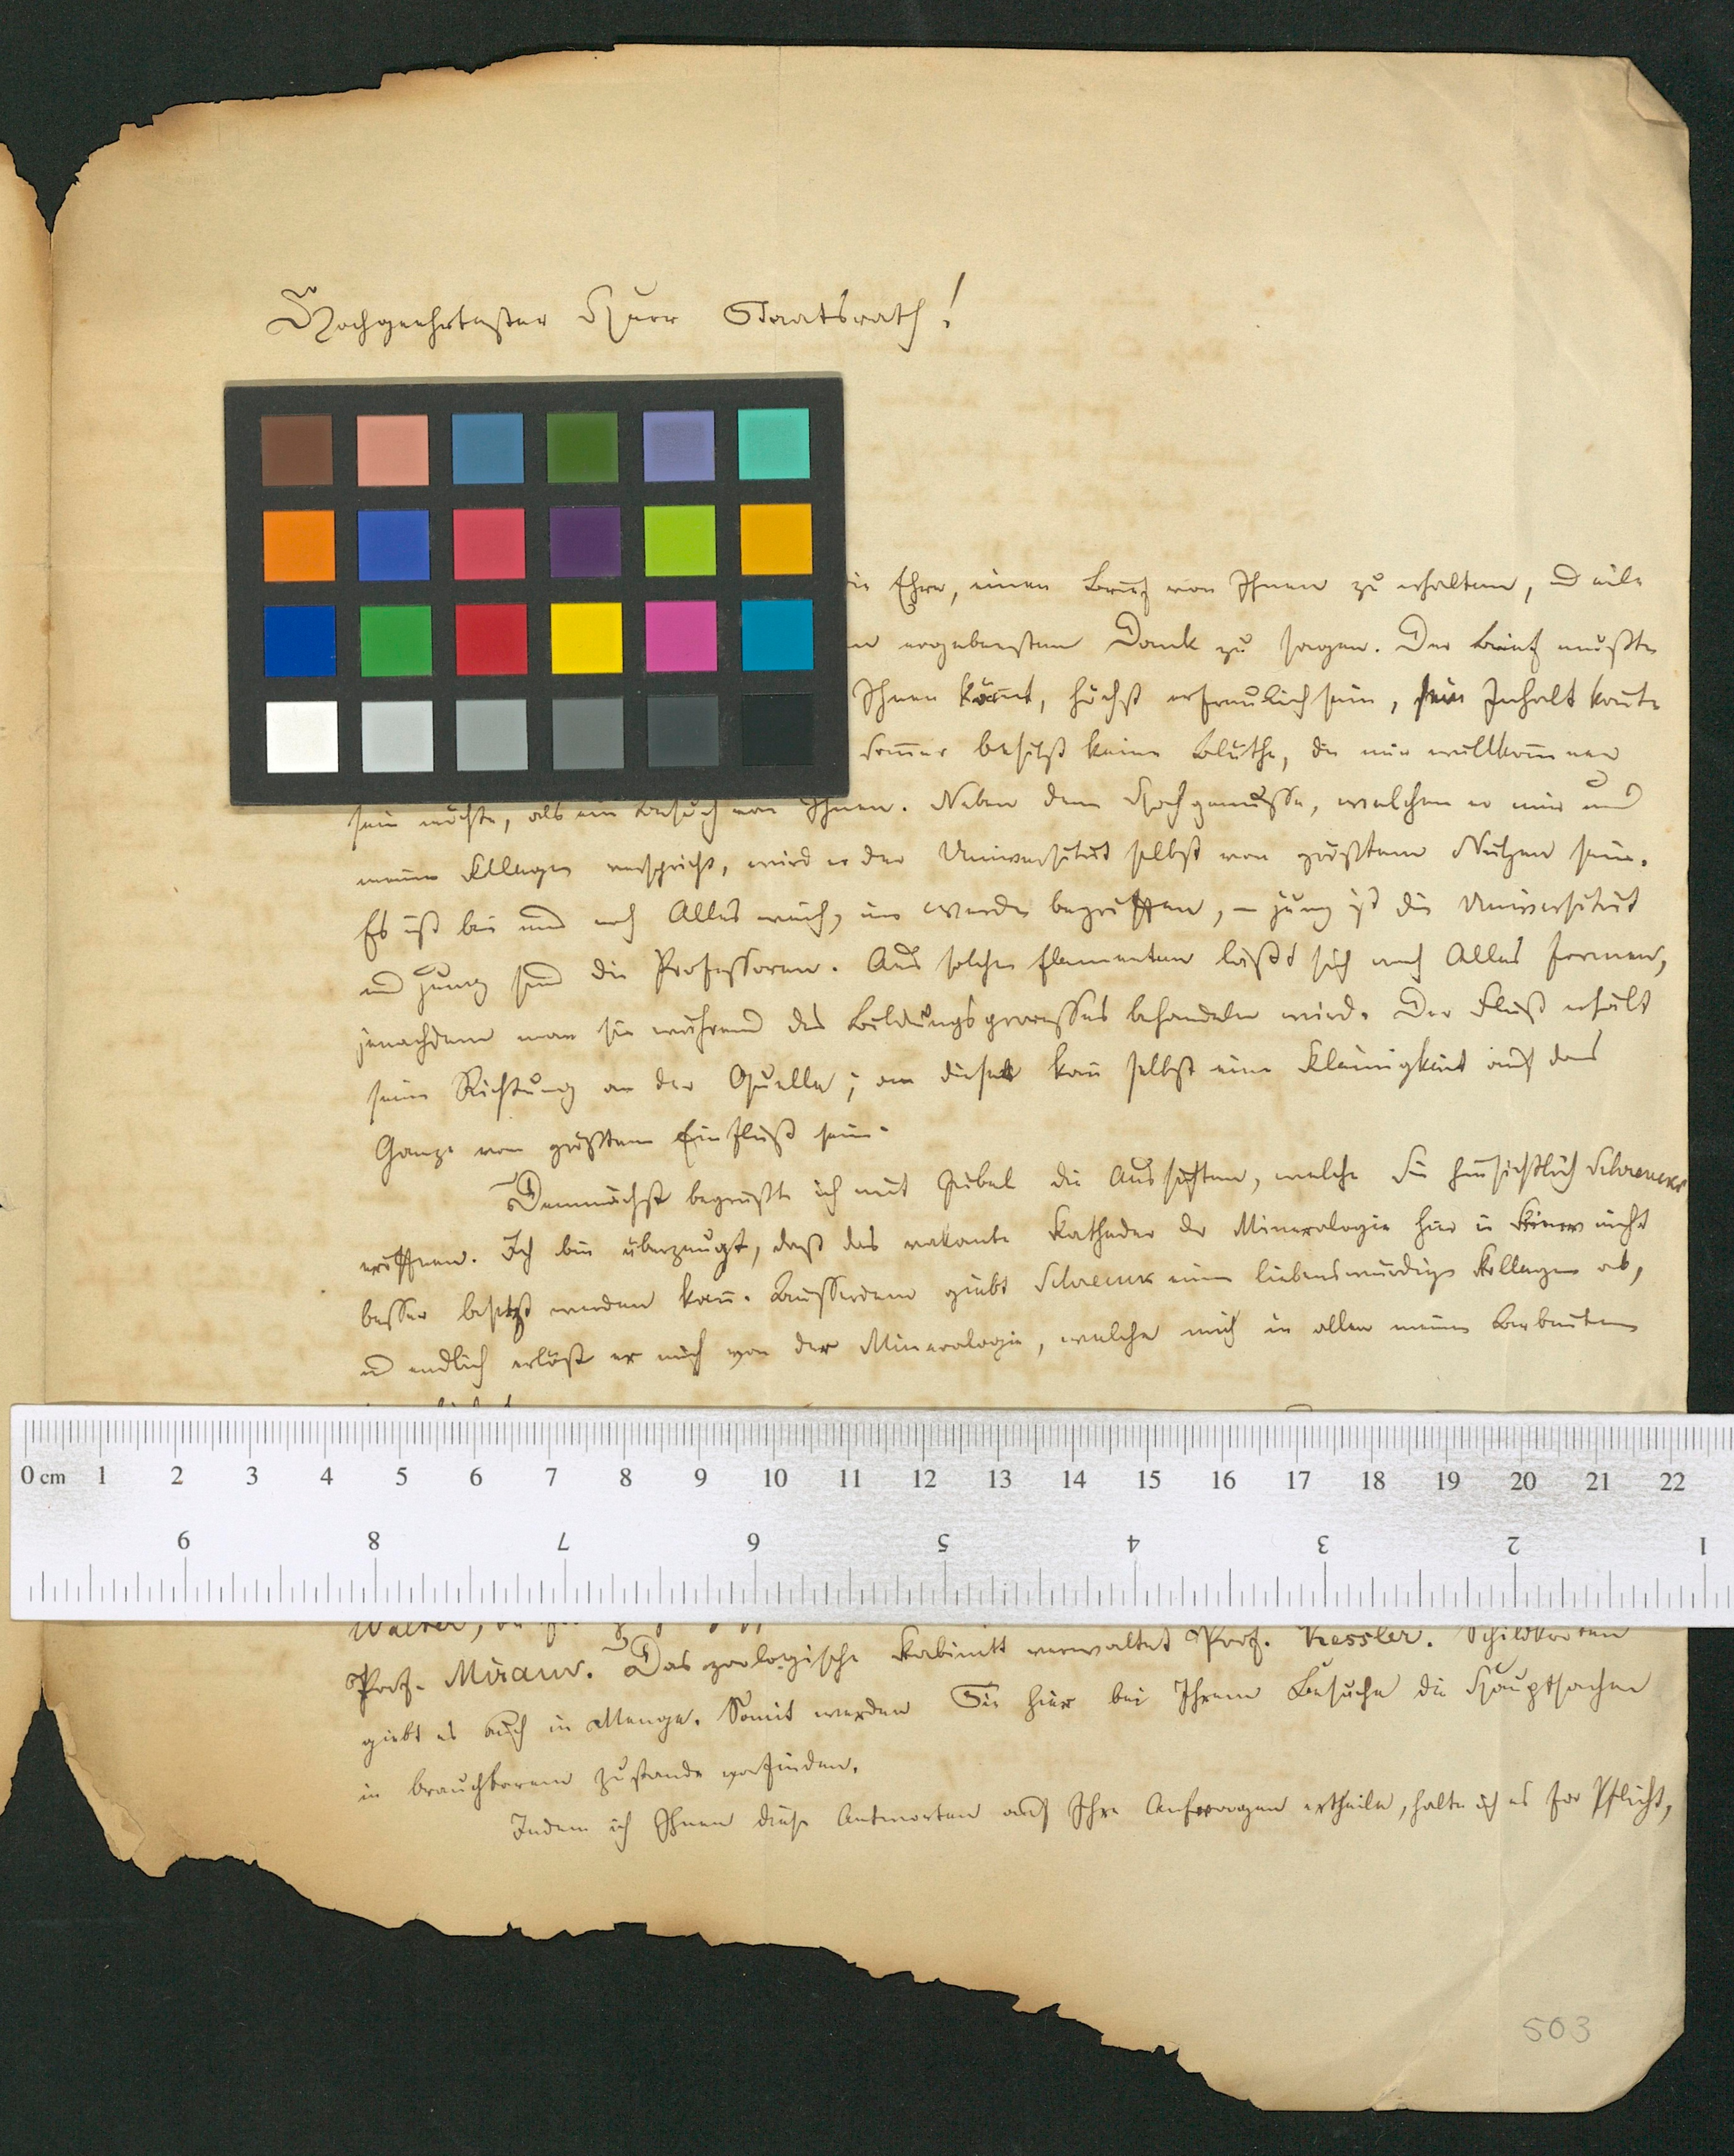 Hochgeehrtester Herr Staatsrath!
die Ehre, einen Brief von Ihnen zu erhalten, und eile
ergebensten Dank zu sagen. Der Brief mußte
Ihnen kömt, höchst erfreulich sein, sein Inhalt konte
Somer besitzt keine Blüthe, die mir willkomener
sein möchte, als ein Besuch von Ihnen. Neben dem Hochgenusse, welchen er mir und
meinen Kollegen verspricht, wird er der Universität selbst von größtem Nutzen sein.
Es ist bei uns noch Alles weich, im Werden begriffen, – jung ist die Universität
und jung sind die Professoren. Aus solchen Elementen läßt sich noch Alles formen,
jenachdem man sie während des Bildungsprocesses behandeln wird. Der Fluß erhält
seine Richtung an der Quelle; an dieser kañ selbst eine Kleinigkeit auf das
Ganze von größtem Einfluß sein.
Demnächst begrüßte ich mit Jubel die Aussichten, welche Sie hinsichtlich Schrencks
eröffnen. Ich bin überzeugt, daß das vakante Katheder der Mineralogie hier in Kiew nicht
besser besetzt werden kañ. Ausserdem giebt Schrenck einen liebenswürdigen Kollegen ab,
und endlich erlöst er mich von der Mineralogie, welche mich in allen meinen Arbeiten
0 cm 1 2 3 4 5 6 7 8 9 10 11 12 13 14 15 16 17 18 19 20 21 22
9 8 7 6 5 4 3 2 1
Walter,
Prof. Miram. Das zoologische Kabinett verwaltet Prof. Kessler. Schildkröten
giebt es auch in Menge. Somit werden Sie hier bei Ihrem Besuche die Hauptsachen
in brauchbarem Zustande vorfinden.
Indem ich Ihnen diese Antworten auf Ihre Anfragen ertheile, halte ich es für Pflicht,
503